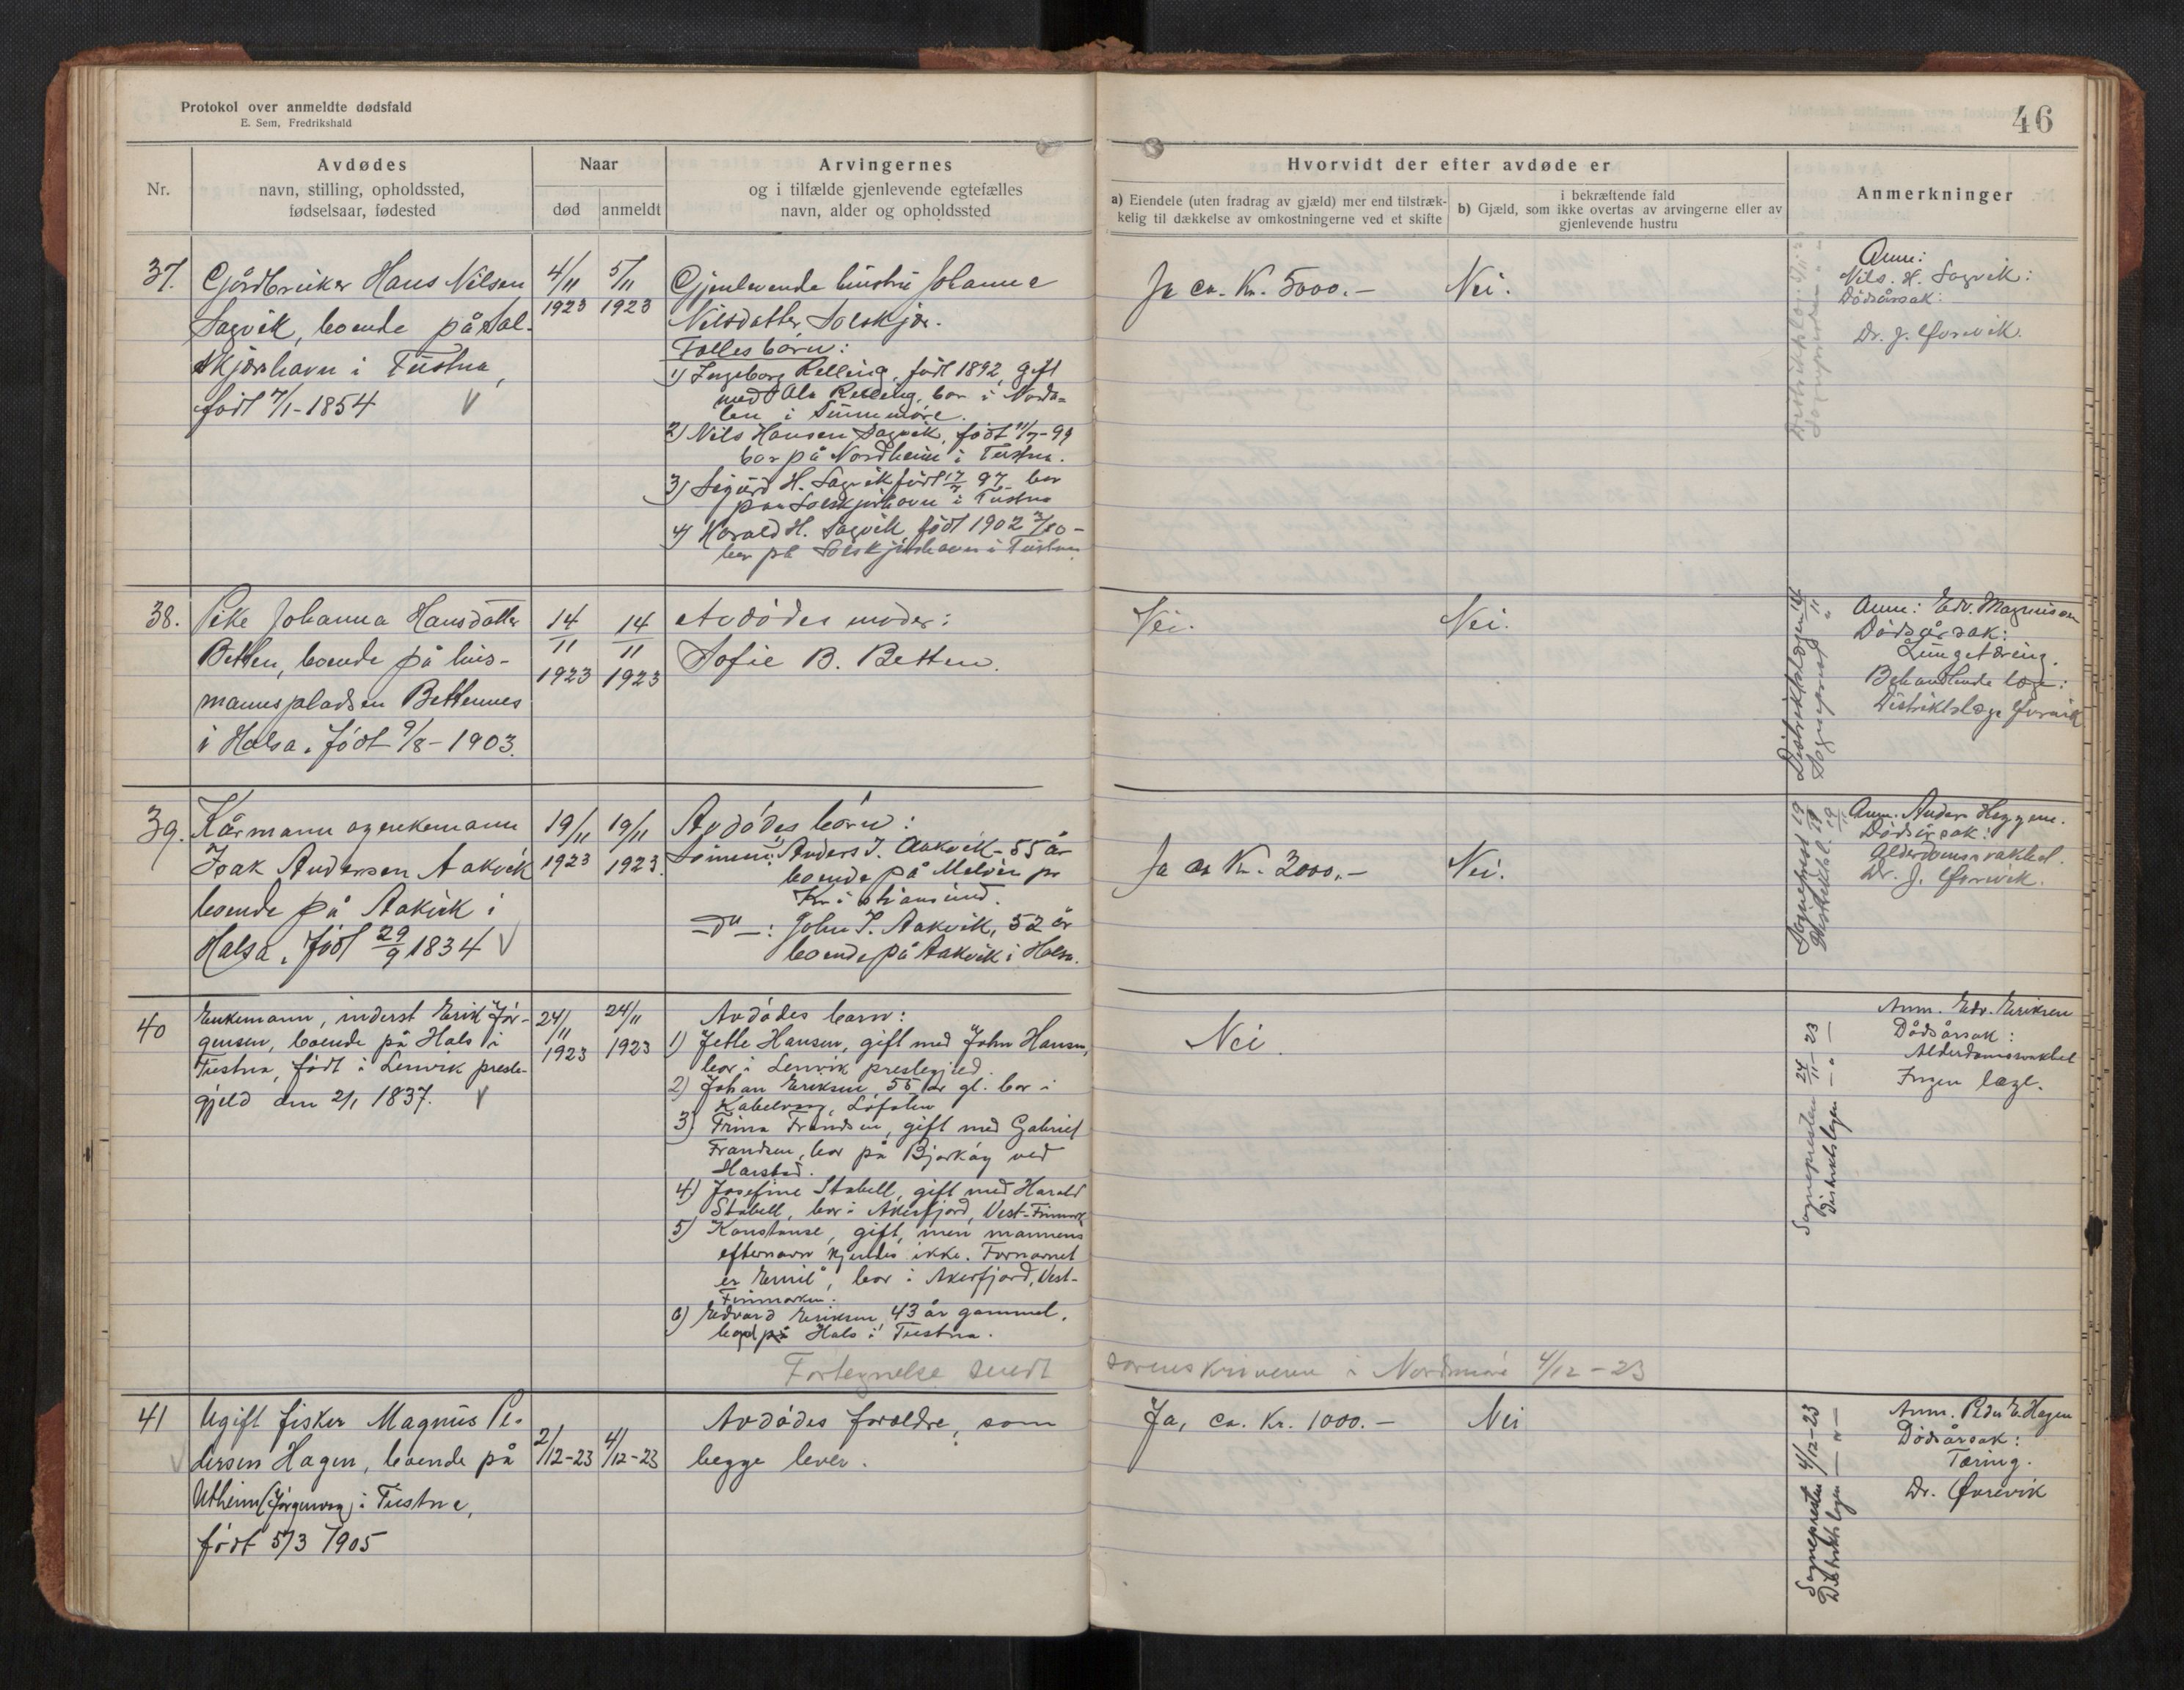 Protokol over anmeldte dødsfald
E. Sem, Fredrikshald
46
Nr.
Avdødes
navn, stilling, opholdssted,
fødselsaar, fødested
Naar
død
anmeldt
Arvingernes
og i tilfælde gjenlevende egtefælles
navn, alder og opholdssted
Hvorvidt der efter avdøde er
a) Eiendele (uten fradrag av gjæld) mer end tilstræk-
kelig til dækkelse av omkostningerne ved et skifte
i bekræftende fald
b) Gjæld, som ikke overtas av arvingerne eller av
gjenlevende hustru
Anmerkninger
37.
Gårdbruker Hans Nilsen
Sagvik, boende på Sol-
skjærshavn i Tustna,
født 7/1-1854
4/11
1923
5/11
1923
Gjenlevende hustru Johanna
Nilsdatter Solskjær.
Fælles barn:
1) Ingeborg Relling, født 1892, gift
med Ola Relling, bor i Norda-
len i Sunnmøre.
2) Nils Hansen Sagvik, født 11/7-99
bor på Nordheim i Tustna.
3) Sigurd H. Sagvik født 97 bor
paa Solskjærshavn i Tustna
4) Harald H. Sagvik født 1902
bor på Solskjærshavn i Tustna
Ja ca. Kr. 5000.-
Nei.
Anm:
Nils. H. Sagvik:
Dødsårsak:
Dr. J. Øvrevik.
38.
Pike Johanna Hansdatter
Betten, boende på hus-
mannspladsen Bettennes
i Halsa, født 9/8-1903.
14
11
1923
14
11
1923
Avdødes moder:
Sofie B. Betten.
Nei.
Nei.
Distriktslægen 14/11
Sogneprest "
Anm: Edv. Magnusson
Dødsårsak:
Lungetæring.
Behandlende læge:
Distriktslæge Øvrevik
39.
Kårmann og enkemann
Isak Andersen Aakvik
boende på Aakvik i
Halsa. Født 29/9 1834
19/11
1923
19/11
1923.
Avdødes børn:
Sønnen: Anders I. Aakvik - 55 år
boende på Melvin pr
Kristiansund.
-d"-: John I. Aakvik, 52 år
boende på Aakvik i Halsa.
Ja ca Kr. 2000.-
Nei.
Sogneprest 19/11
Distriktsl. 19/11
Anm. Anders Heggem.
Dødsårsak:
Alderdomssvakhet.
Dr. J. Øvrevik.
40
Enkemann, inderst Erik Jør-
gensen, boende på Hals i
Tustna, født i Lenvik preste-
gjeld den 2/1 1837.
24/11
1923
24/11
1923
Avdødes barn:
1) Jette Hansen, gift med John Hansen,
bor i Lenvik prestegjeld.
2) Johan Eriksen, 55 år gl. bor i
Kabelvaag, Lofoten
3) Trina Frandsen, gift med Gabriel
Frandsen, bor på Bjarkøy ved
Harstad.
4) Josefine Stabell, gift med Harald
Stabell, bor i Akerfjord, Vest-Finmark
5) Konstanse, gift, men mannens
efternavn kjendes ikke. Fornavnet
er "Emil", bor i Akerfjord, Vest-
Finmarken.
6) Edvard Eriksen, 43 år gammel,
bor på Hals i Tustna.
Nei.
Sognepresten 24/11-23
Distriktslægen -"-
Anm. Edv. Eriksen
Dødsårsak:
Alderdomssvakhet
Ingen læge.
Fortegnelse sendt sorenskriveren i Nordmøre 4/12-23
41
Ugift fisker Magnus Pe-
dersen Hagen, boende på
Utheim (Jørgenvåg) i Tustna,
født 5/3 1905
2/12-23
4/12-23
Avdødes foreldre, som
begge lever.
Ja, ca. Kr. 1000.-
Nei
Sognepresten 4/12-23
Distriktslægen -"-
Anm. Peder E. Hagen
Dødsårsak:
Tæring.
Dr. Øvrevik